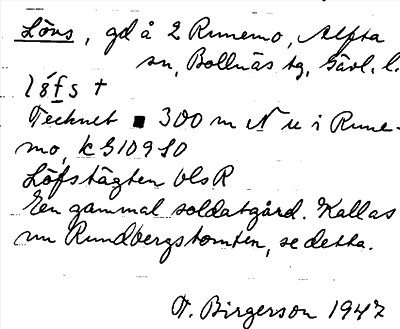 Lövs, gd å 2 Runemo, Alfta
sn, Bollnäs tg, Gävl. l.
löfs +
Tecknet ■ 300 m N u i Rune-
mo, k G109 SO
Löfstägten OlsR
En gammal soldatgård. Kallas
nu Rundbergstomten, se detta.
Birgerson 1947